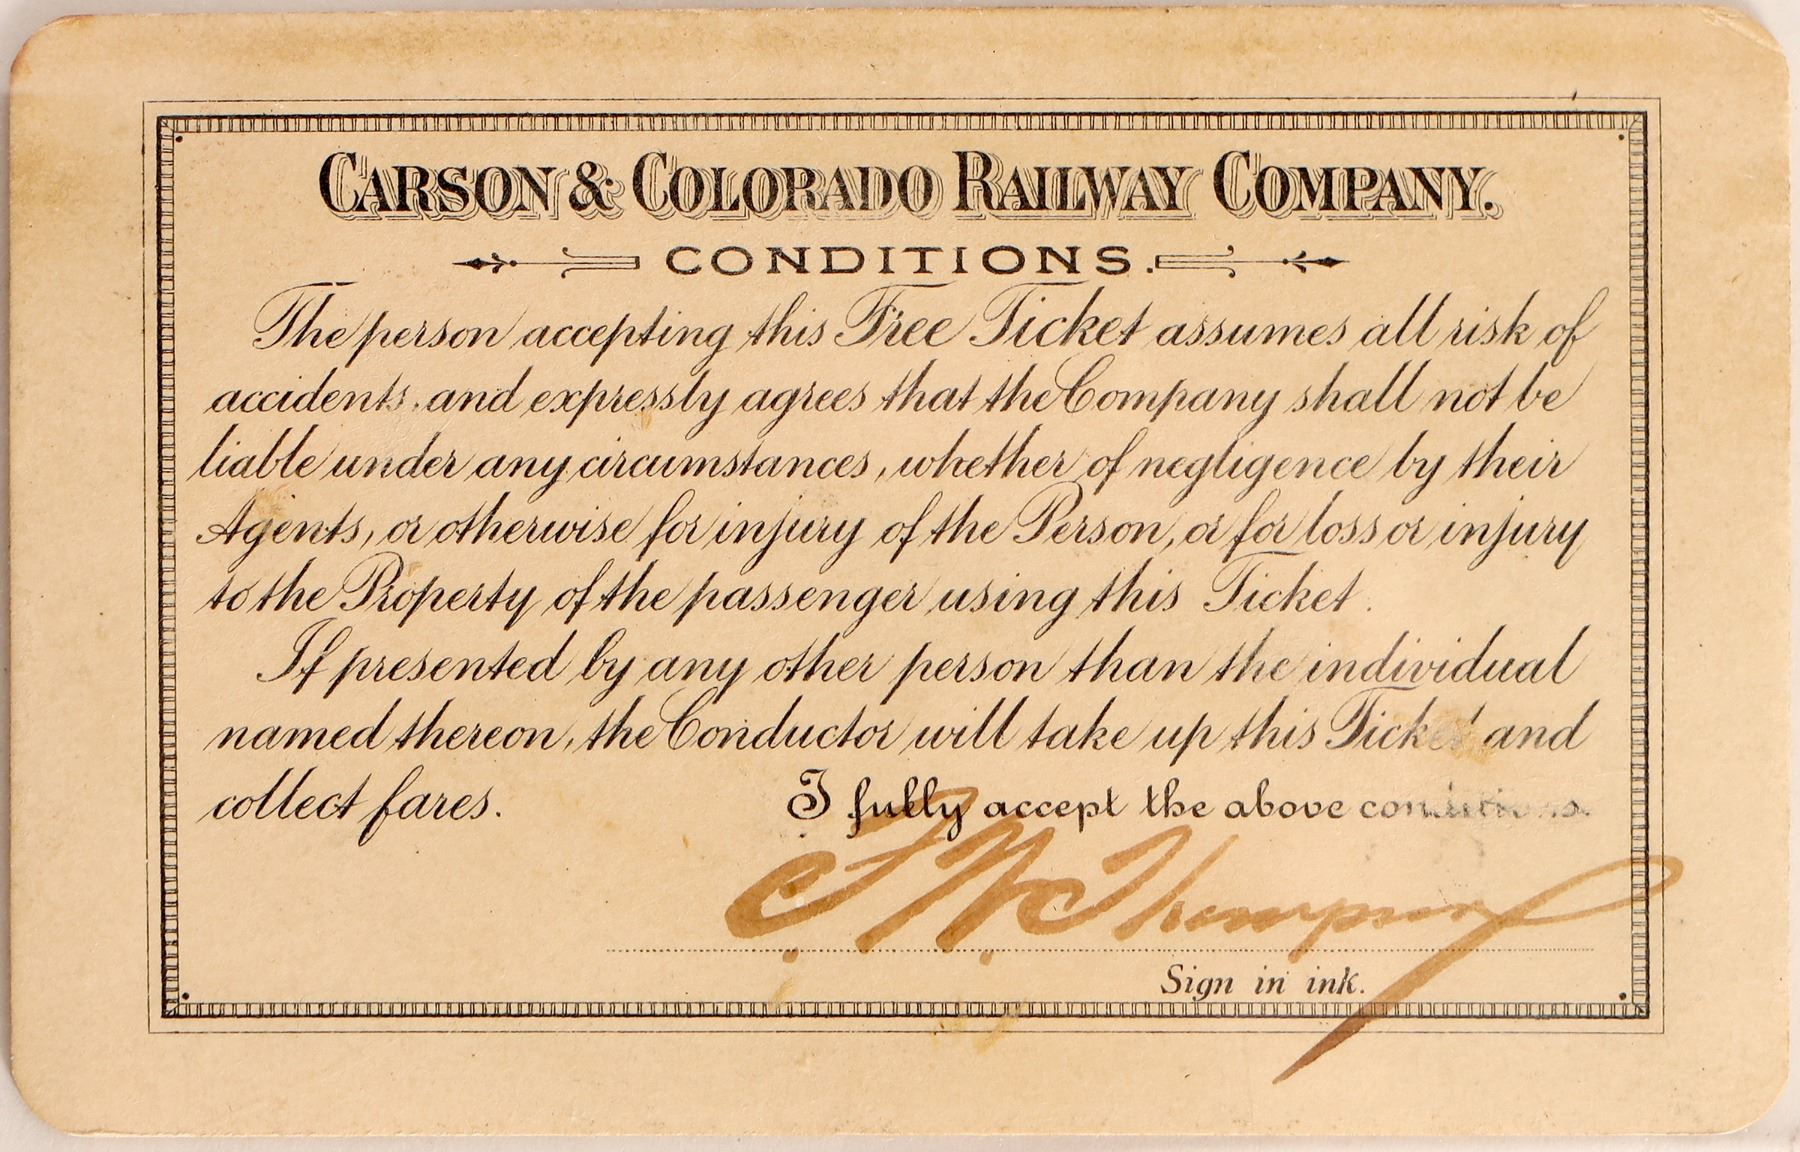 CARSON & COLORADO RAILWAY COMPANY.
CONDITIONS.
The person accepting this Free Ticket assumes all risk of
accidents, and expressly agrees that the Company shall not be
liable under any circumstances, whether of negligence by their
Agents, or otherwise for injury of the Person, or for loss or injury
to the Property of the passenger using this Ticket.
If presented by any other person than the individual
named thereon, the Conductor will take up this Ticket and
collect fares.
I fully accept the above conditions.
Thompson
Sign in ink.